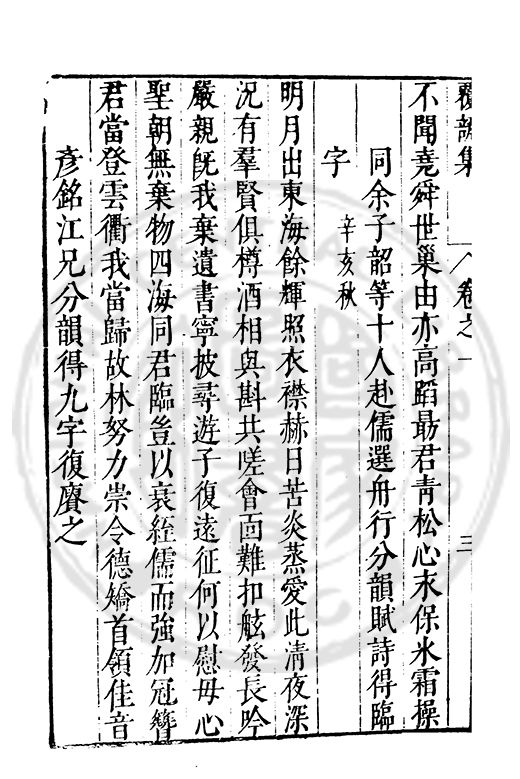 覆瓿集 卷之一 三
不聞堯舜世巢由亦高蹈最君青松心永保氷霜操
同余子韶等十人赴儒選舟行分韻賦詩得臨
字 辛亥秋
明月出東海餘輝照衣襟赫日苦炎蒸愛此淸夜深
況有羣賢俱樽酒相與斟共嗟會面難扣舷發長吟
嚴親旣我棄遺書寧披尋遊子復遠征何以慰母心
聖朝無棄物四海同君臨豈以衰絰儒而強加冠簪
君當登雲衢我當歸故林努力崇令德矯首領佳音
彥銘江兄分韻得九字復賡之